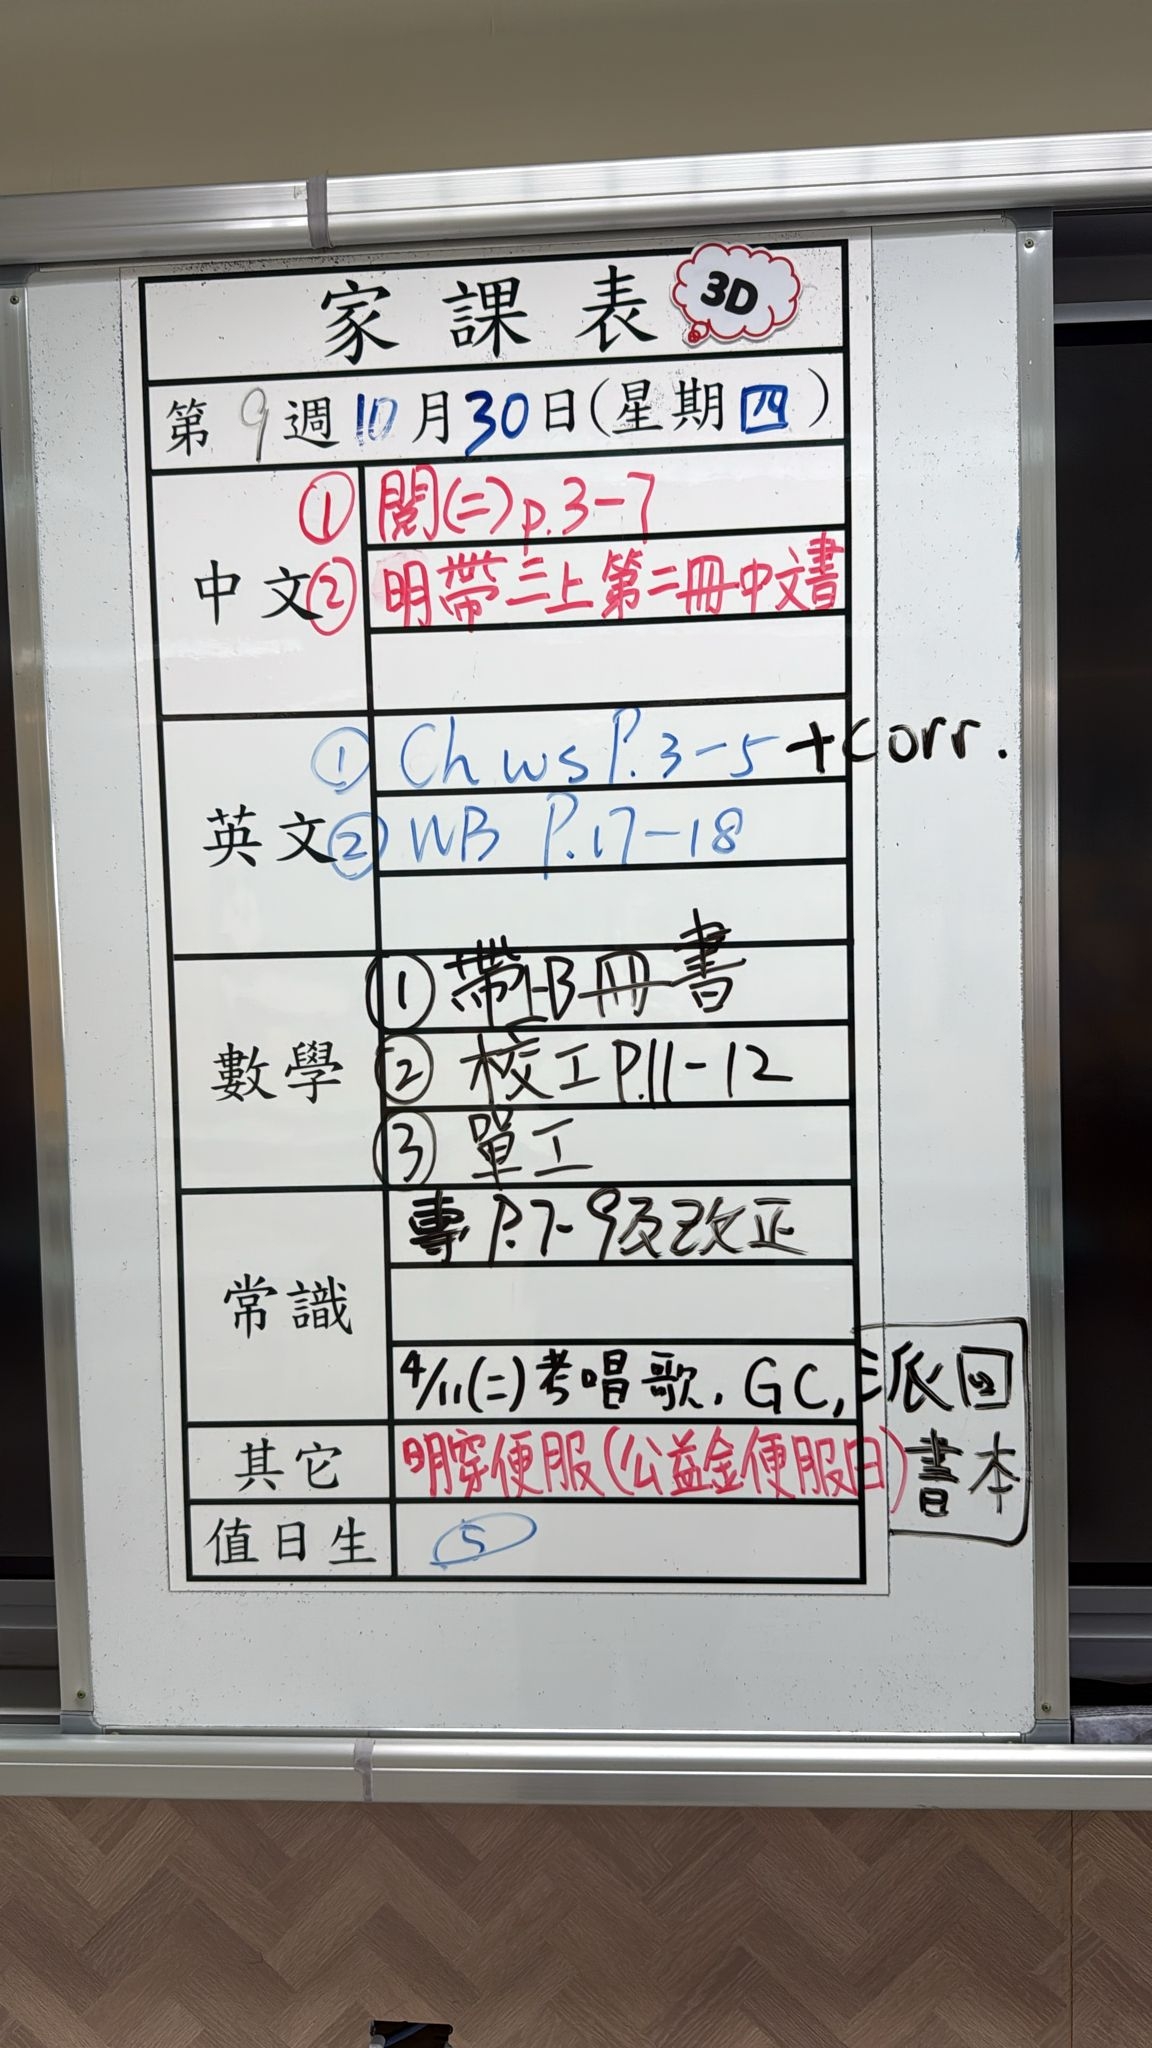 家課表 3D
第9週10月30日(星期四)
中文
① 閱(二)p.3-7
② 明帶三上第二冊中文書
英文
① Ch ws P.3-5 +corr.
② WB P.17-18
數學
① 帶上B冊書
② 校工P.11-12
③ 單工
常識
專 P.7-9及改正
4/11(二)考唱歌, GC, 派回書本
其它
明穿便服(公益金便服日)
值日生
5